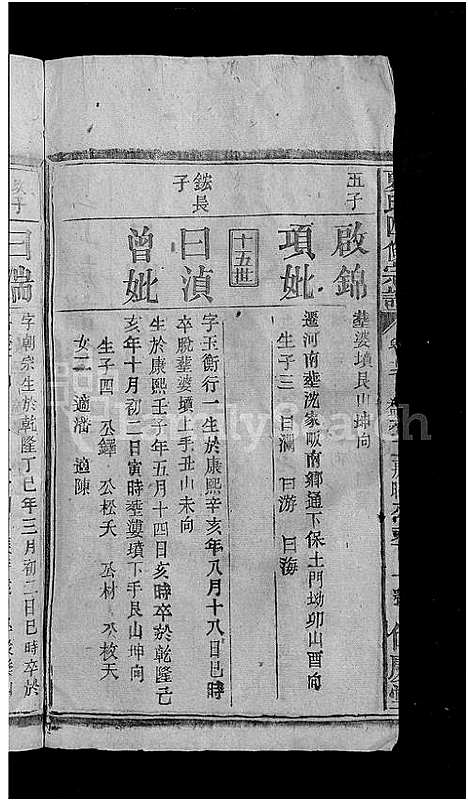 五子
啟錦
葬婆墳艮山坤向
項妣
遷河南葬沈家畈南鄉通下保土門坳卯山酉向
生子三 曰瀾 曰游 曰海
十五世
鋐長子
曰湞
字玉衡行一生於康熙辛亥年八月十八日巳時
卒歿葬婆墳上手丑山未向
曾妣
生於康熙壬子年五月十四日亥時卒於乾隆己
亥年十月初二日寅時葬婆墳下手艮山坤向
生子四 公鐸 公松夭 公材 公枚夭
女二 適潘 適陳
曰瑞
字朝宗生於乾隆丁巳年三月初二日巳時卒於
FamilySearch